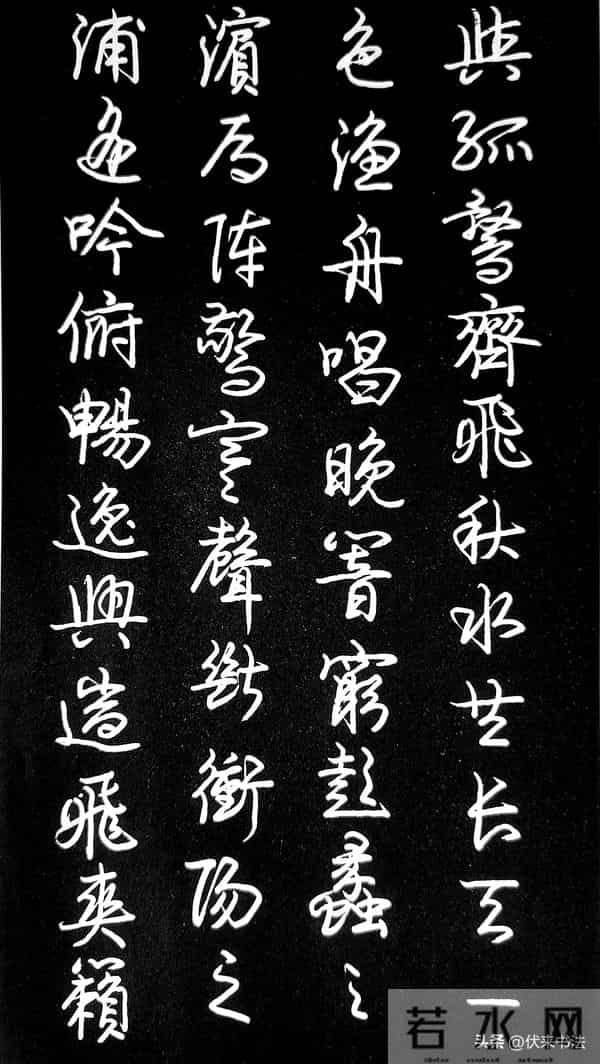 與孤鶩齊飛秋水共长天一
色渔舟唱晚響窮彭蠡之
濱雁阵驚寒聲断衡陽之
浦遥吟俯暢逸興遄飛爽籟
若水网
头条 @伏来书法